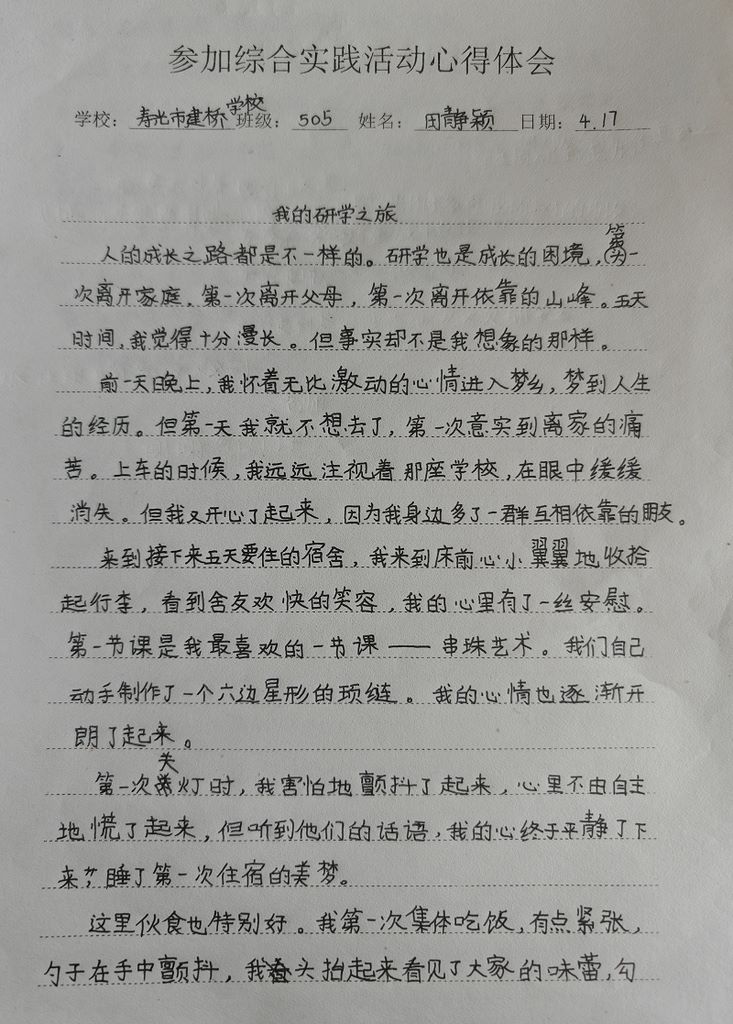 参加综合实践活动心得体会
学校：寿光市建桥学校 班级：505 姓名：田静颖 日期：4.17
我的研学之旅
人的成长之路都是不一样的。研学也是成长的困境，第一
次离开家庭，第一次离开父母，第一次离开依靠的山峰。五天
时间，我觉得十分漫长。但事实却不是我想象的那样。
前一天晚上，我怀着无比激动的心情进入梦乡，梦到人生
的经历。但第一天我就不想去了，第一次意实到离家的痛
苦。上车的时候，我远远注视着那座学校，在眼中缓缓
消失。但我又开心了起来，因为我身边多了一群互相依靠的朋友。
来到接下来五天要住的宿舍，我来到床前心小翼翼地收拾
起行李，看到舍友欢快的笑容，我的心里有了一丝安慰。
第一节课是我最喜欢的一节课——串珠艺术。我们自己
动手制作了一个六边星形的项链。我的心情也逐渐开
朗了起来。
第一次关灯时，我害怕地颤抖了起来，心里不由自主
地慌了起来，但听到他们的话语，我的心终于平静了下
来，睡了第一次住宿的美梦。
这里伙食也特别好。我第一次集体吃饭，有点紧张，
勺子在手中颤抖，我头抬起来看见了大家的味蕾，勾